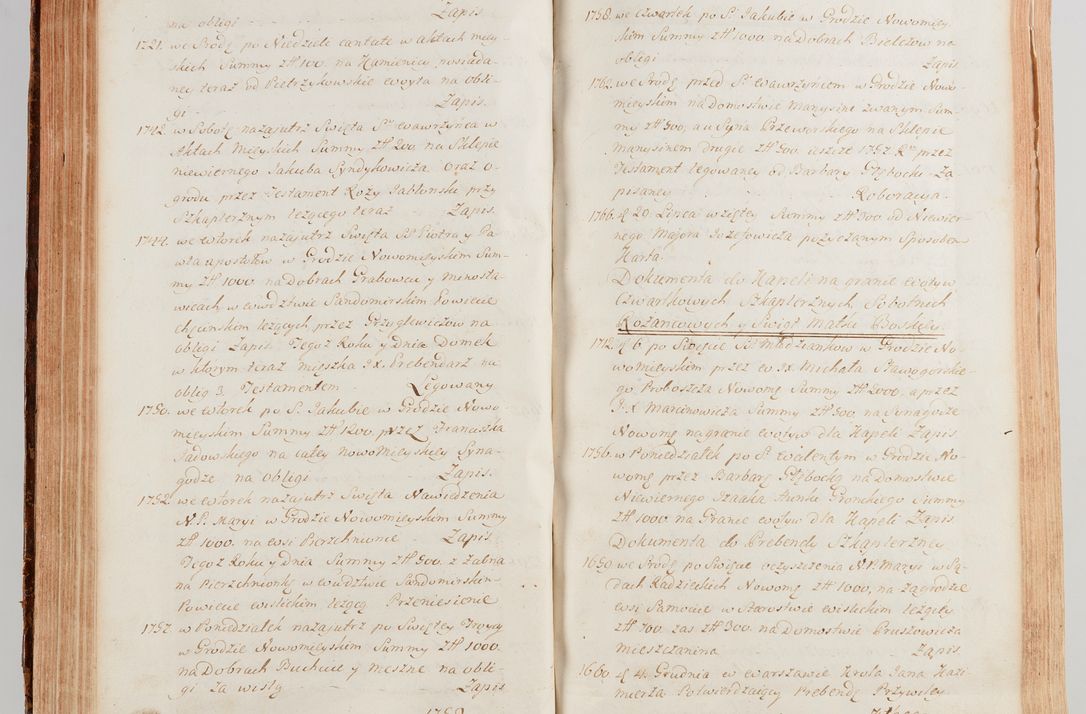 na obligi Zapis
1721. we Srodę po Niedzieli cantate w aktach miey-
skich Summy zł 100. na Kamienicy posiada-
ney teraz od Pietrzykowskie woyta na obli-
gi Zapis.
1742. w Sobotę nazajutrz Swięta Sº Wawrzyńca w
Aktach Mieyskich Summy zł 200. na Sklepie
niewiernego Jakuba Syndykowicza oraz o-
grodu przez Testament Rozy Jabłonski przy
Szkaplerznym leżącego teraz Zapis.
1744. we Wtorek nazajutrz Swięta SS Piotra y Pa-
wła apostołow w Grodzie Nowomieyskim Sum-
my zł 1000 na Dobrach Grabowcu y Mirosła-
wicach w Ewudztwie Sandomirskim Powiecie
chęcinskim leżących przez Grzyglewiczow na
obligi Zapis Tegoż Roku y dnia Domek
w ktorym teraz mięszka JX. Prebendarz na
oblig 3. Testamentem Legowany
1750. we Wtorek po S. Jakubie w Grodzie Nowo-
mieyskim Summy zł 1200. przez Franciszka
Sadowskiego na całey nowo Mieyskiey Syna-
godze na obligi Zapis.
1752. we Wtorek nazajutrz Swięta Nawiedzenia
N. P. Maryi w Grodzie Nowomieyskim Summy
zł 1000. na Wsi Pierzchnionie Zapis.
Tegoż Roku y Dnia Summy zł 500. z Zabna
na Pierzchnionkę w Ewudztwie Sandomirskim
Powiecie Wislickim leżącą Przeniesienie
1757. w Poniedziałek nazajutrz po Swiętey Troycy
w Grodzie Nowomieyskim Summy zł 1000.
na Dobrach Buchcice y Meszne na obli-
gi za wisłą Zapis
1758.
1758. we Czwartek po S. Jakubie w Grodzie Nowomiey-
skim Summy zł 1000. na Dobrach Bielczow na
obligi Zapis
1762. we Srodę przed Sº Wawrzyńcem w Grodzie Nowo-
mieyskim na Domostwie Manysine zwanym Sum-
my zł 500, a u Syna Przeworskiego na Sklepie
Manysinem drugie zł 500. ieszcze 1757. Rº przez
Testament legowaney od Barbary Głębocki Za-
pisaney Roboracya.
1766. d 20. Lipca wziętey Summy zł 500 od Niewier-
nego Majora Jozefowicza pożyczanym Sposobem
Karta.
Dokumenta do Kapeli na granie Wotyw
Czwartkowych Szkaplerznych Sobotnich
Rożancowych y Swiąt Matki Boskiey
1712. d 6 po Swięcie SS Młodziankow w Grodzie No-
womieyskim przez W JX. Michała Stawogorskie-
go Proboszcza Nowomº Summy zł 2000. a przez
J. X. Marcinowicza Summy zł 500 na Synagodze
Nowomº na granie Wotyw dla Kapeli Zapis.
1756. w Poniedziałek po Sº Walentym w Grodzie No-
womº przez Barbarę Głębocką na Domostwie
Niewiernego Izaaka Gronckiego Summy
zł 1000. na Granie Wotyw dla Kapeli Zapis.
Dokumenta do Prebendy Szkaplerzney
1659. we Srodę po Swięcie oczyszczenia N.P. Maryi w Są-
dach Radzieckich Nowomº zł 1000, na Zagrodzie
Wsi Samocic w Starostwie Wislickim leżącey
zł 700. zas zł 300. na Domostwie Pruszowicza
Mieszczanina Zapis
1660. d 4. Grudnia w Warszawie Krola Jana Kazi-
mierza Potwierdzaiący Prebendę Przywiley.